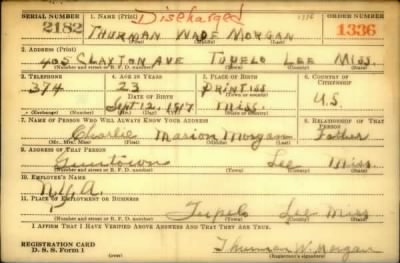 SERIAL NUMBER 1. NAME (Print) Discharged 1336 ORDER NUMBER
2182 THURMAN WADE MORGAN 1336
2. ADDRESS (Print)
405 CLAYTON AVE TUPELO LEE MISS.
3. TELEPHONE 4. AGE IN YEARS 5. PLACE OF BIRTH 6. COUNTRY OF CITIZENSHIP
374 23
DATE OF BIRTH (Town or county)
Sept 12, 1917 MISS. U.S.
(Exchange) (Number) (Mo.) (Day) (Yr.) (State or country)
7. NAME OF PERSON WHO WILL ALWAYS KNOW YOUR ADDRESS 8. RELATIONSHIP OF THAT PERSON
Charlie Marion Morgan Father
(Mr., Mrs., Miss) (First) (Middle) (Last)
9. ADDRESS OF THAT PERSON
Guntown Lee Miss.
(Number and street or R. F. D. number) (Town) (County) (State)
10. EMPLOYER'S NAME
N.Y.A.
11. PLACE OF EMPLOYMENT OR BUSINESS
Tupelo Lee Miss
(Number and street or R. F. D. number) (Town) (County) (State)
I AFFIRM THAT I HAVE VERIFIED ABOVE ANSWERS AND THAT THEY ARE TRUE.
REGISTRATION CARD
D. S. S. Form 1 Thurman W. Morgan
(over) (Registrant's signature)